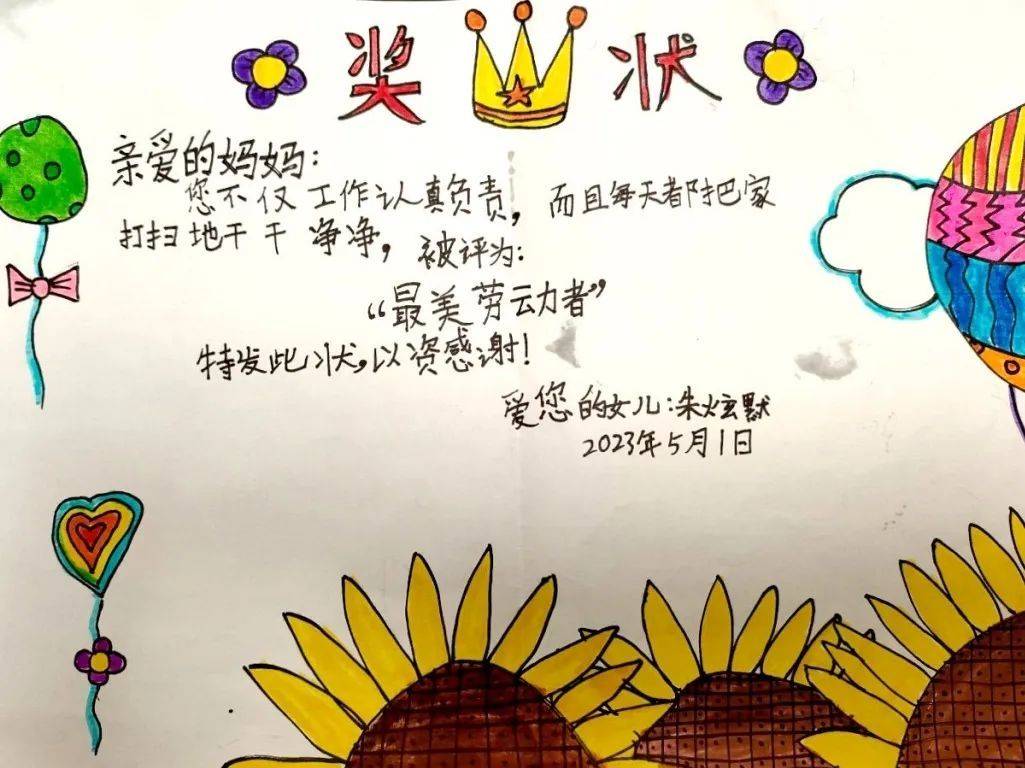 奖状
亲爱的妈妈：
您不仅工作认真负责，而且每天都把家
打扫地干干净净，被评为：
“最美劳动者”
特发此状，以资感谢！
爱您的女儿：朱炫默
2023年5月1日